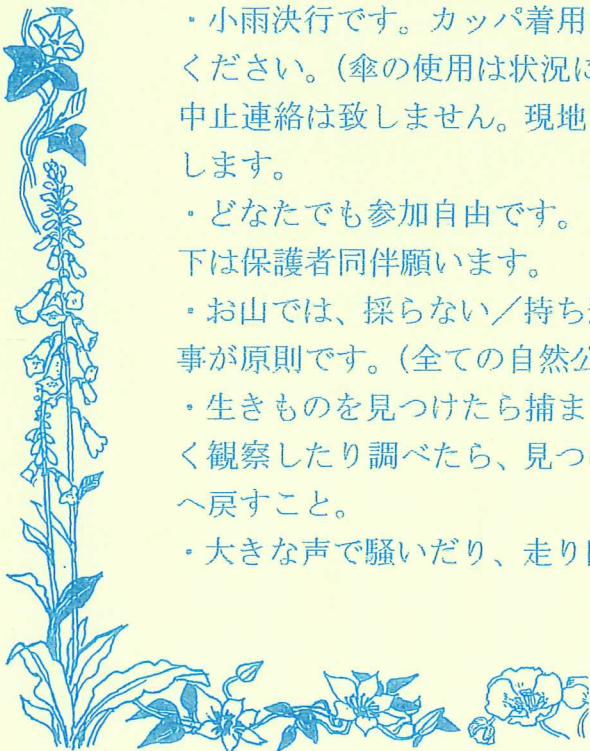 ・小雨決行です。カッパ着用
ください。(傘の使用は状況に
中止連絡は致しません。現地
します。
・どなたでも参加自由です。
下は保護者同伴願います。
・お山では、採らない／持ち
事が原則です。(全ての自然公
・生きものを見つけたら捕ま
く観察したり調べたら、見つ
へ戻すこと。
・大きな声で騒いだり、走り